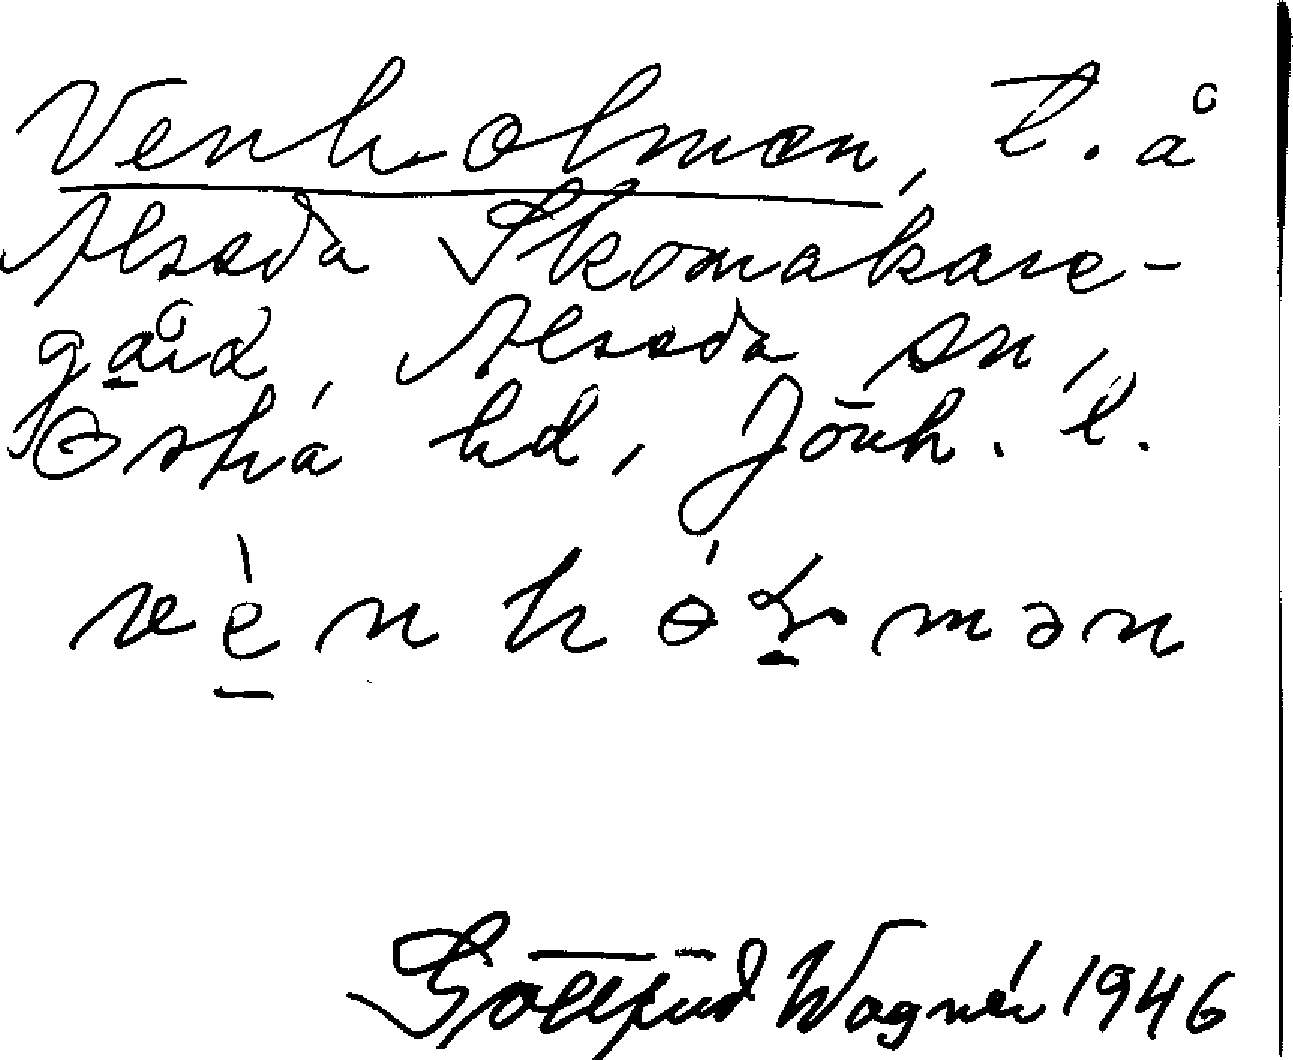 Venholmen, t. å
Alseda Skomakare-
gård, Alseda sn,
Östra hd, Jönk. l.
Gottfrid Wagnér 1946